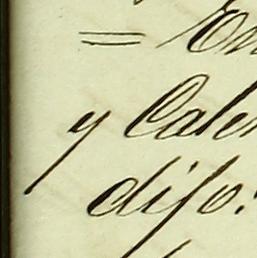 = En
y Cale
dijo: